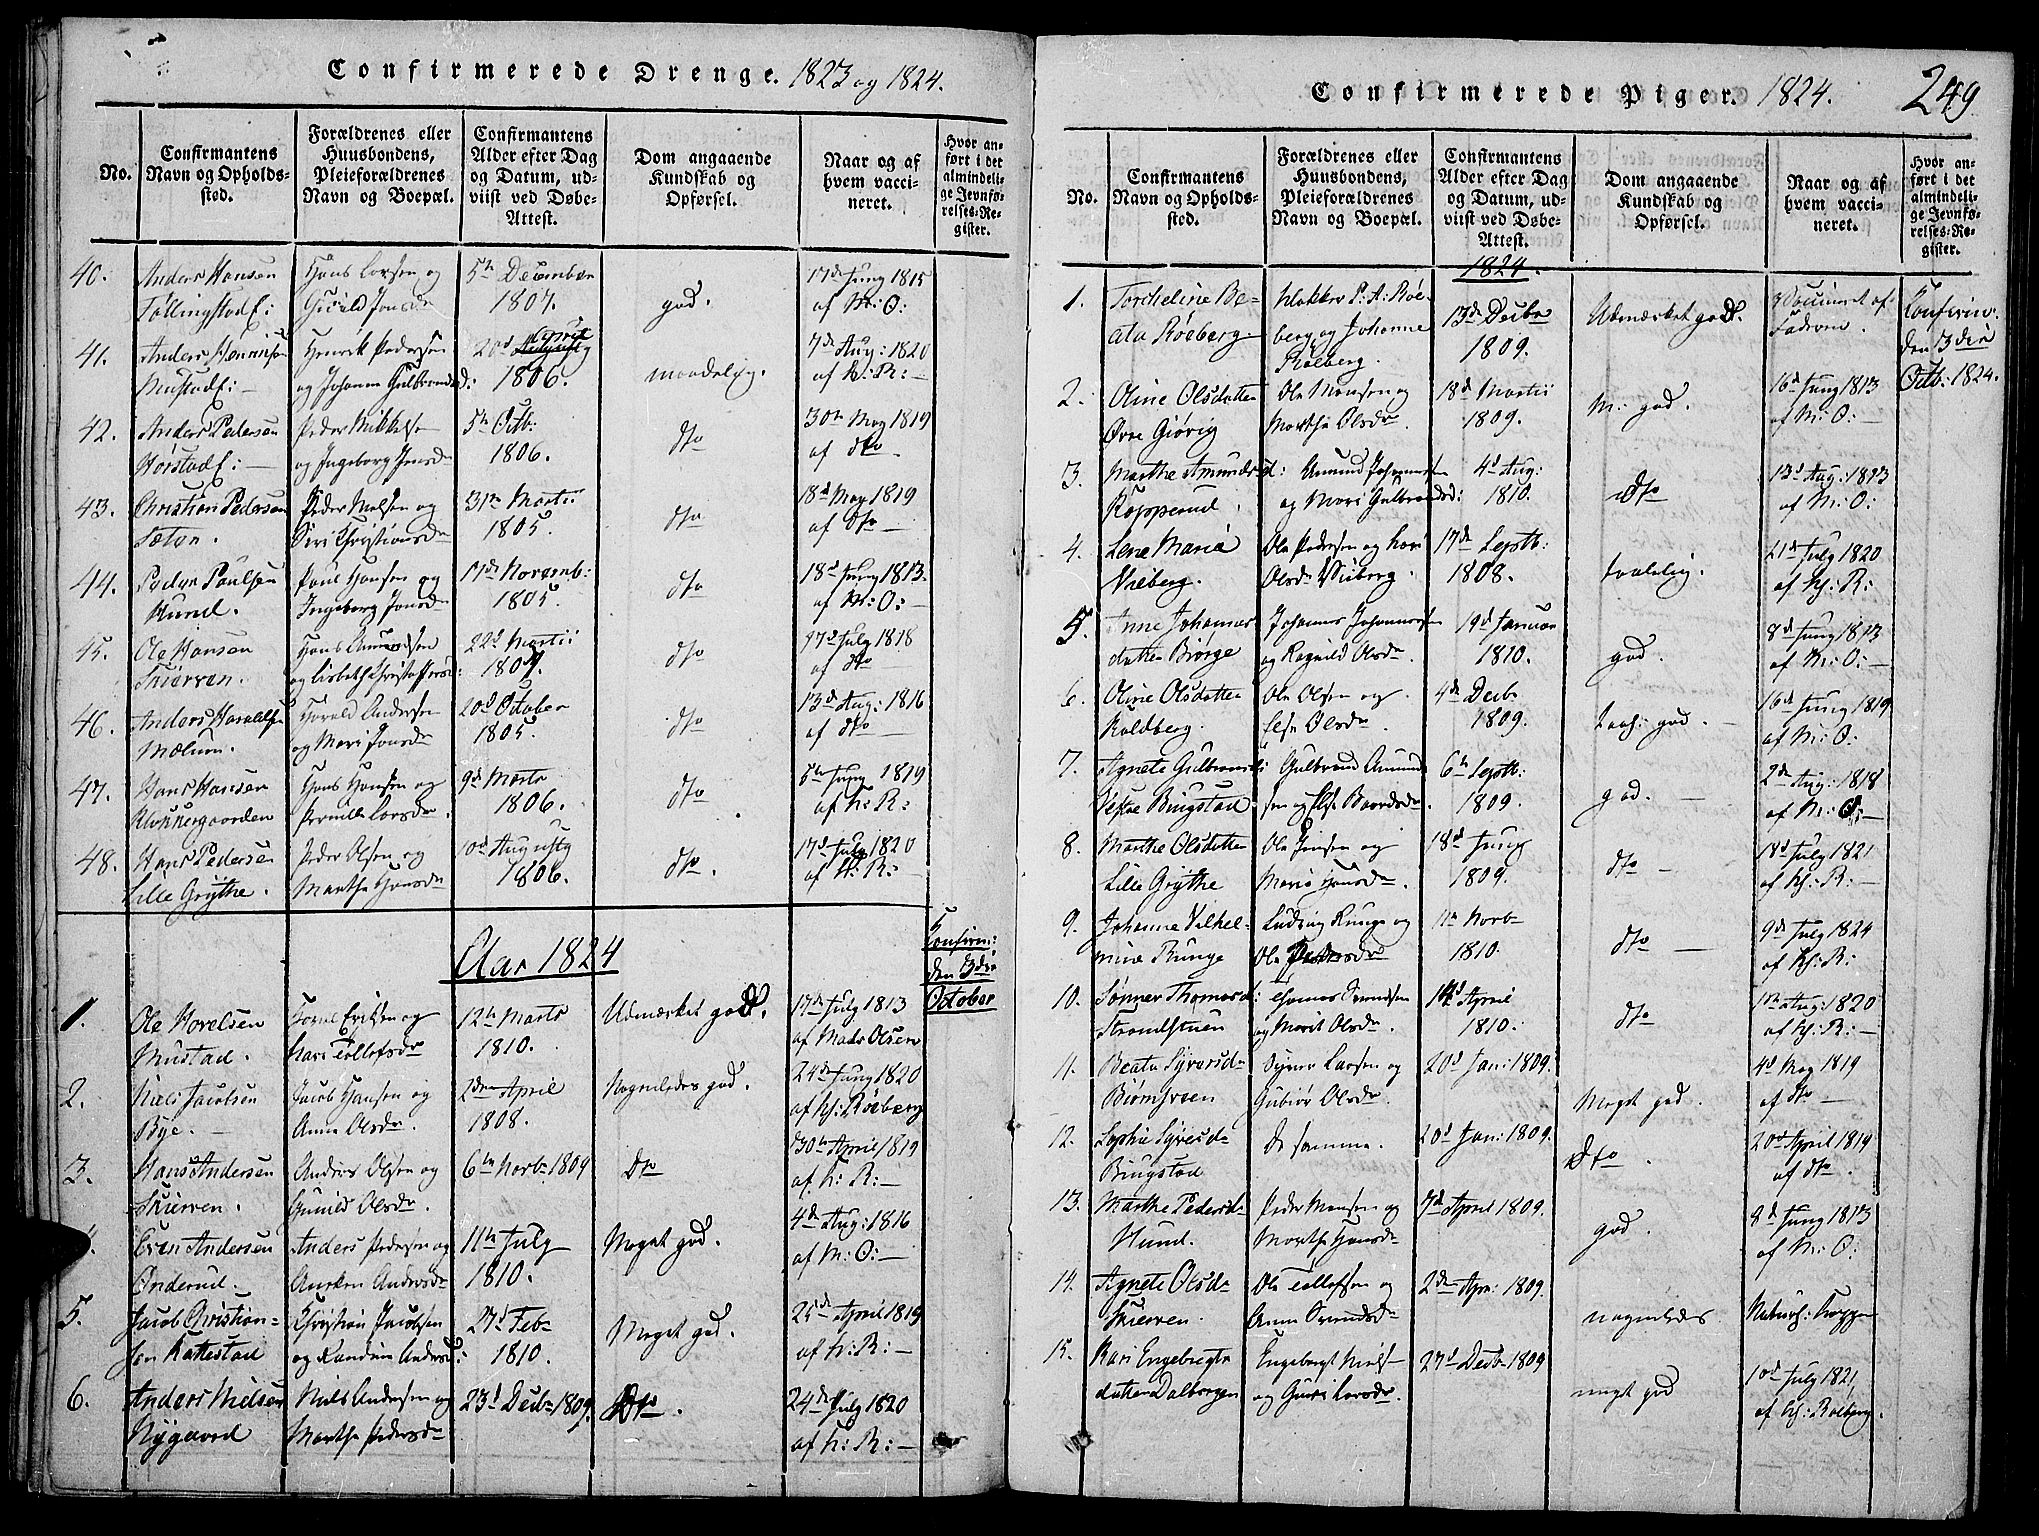 Confirmerede Drenge. 1823 og 1824.
No.
Confirmantens
Navn og Opholds-
sted.
Forældrenes eller
Huusbondens,
Pleieforældrenes
Navn og Boepæl.
Confirmantens
Alder efter Dag
og Datum, ud-
viist ved Døbe-
Attest.
Dom angaaende
Kundskab og
Opførsel.
Naar og af
hvem vacci-
neret.
Hvor an-
ført i det
almindeli-
ge Jevnfø-
relses-Re-
gister.
40. Anders Hansen
Hans Larsen og
Jonsdr
5te December
1807.
god.
17de Juny 1815
af M: O:
41. Anders
Henrik Pedersen
og Johanne Gulbrandsd:
20d April
1806.
maadelig.
7de Aug: 1820
af K: R:
42. Anders Pedersen
Peder Mikkelsen
og Ingeborg Jonsdr
5te Octb:
1806.
dto
30te May 1819
af dto
43. Christian Pedersen
Sæter.
Peder Nielsen og
Siri Christiansdr
31te Martii
1805.
dto
18d May 1819
af dto
44. Peder Paulsen
Hund.
Paul Hansen og
Ingeborg Jonsdr
17de Novemb:
1805.
dto
18d Juny 1813.
af M: O:
45. Ole Hansen
Skierven.
Hans Amundsen
og Lisbeth Christoffersd:
22d Martii
1807.
dto
17d July 1818
af dto
46. Anders Haraldsen
Mælum.
Harald Andersen
og Mari Jonsdr
20d October
1805.
dto
13d Aug: 1816
af dto
47. Hans Hansen
Klokkergaarden
Hans Hansen og
Pernille Larsdr.
9d Marts
1806.
dto
5te Juny 1819
af K: R:
48. Hans Pedersen
Lille Grythe.
Peder Olsen og
Marthe Hansdr
10d Augusty
1806.
dto.
17d July 1820
af K: R:
Aar 1824
Konfirm:
den 3die
October
1. Ole Hovelsen
Mustad.
Eriksen og
Kari Tollefsdr
12te Marts
1810.
Udmærket god.
17de July 1813
af Mads Olsen
2. Niels Jacobsen
Bye.
Jacob Hansen og
Anne Olsdr.
2den April
1808.
Nogenledes god.
24de Juny 1820
af Kl: Røeberg
3. Hans Andersen
Skierven.
Anders Olsen og
Gunild Olsdr.
6te Novbr 1809
Dto
30te April 1819
af K: R:
4. Even Andersen
Onderud.
Anders Pedersen og
Andersdr
11te July
1810.
Meget god.
4de Aug: 1816
af M: O:
5. Jacob Christian-
sen Kattestad
Christian Jacobsen
og Randine Andersd:
27d Febr
1810.
Meget god.
25de April 1819
af K: R:
6. Anders Nielsen
Nygaard
Niels Andersen og
Marthe Pedersdr
23d Decbr 1809.
Dto.
24de July 1820
af K: R:
Confirmerede Piger. 1824. 249
No.
Confirmantens
Navn og Opholds-
sted.
Forældrenes eller
Huusbondens,
Pleieforældrenes
Navn og Boepæl.
Confirmantens
Alder efter Dag
og Datum, ud-
viist ved Døbe-
Attest.
Dom angaaende
Kundskab og
Opførsel.
Naar og af
hvem vacci-
neret.
Hvor an-
ført i det
almindeli-
ge Jevnfø-
relses-Re-
gister.
1824.
1. Torcheline Be-
ata Røeberg
Klokker P: A: Røe-
berg og Johanne
Røeberg.
13de Decbr
1809.
Udmærket god.
af
Faderen.
Konfirm:
den 3die
Octb: 1824.
2. Oline Olsdatter
Øvre Giøvig
Ole Monsen og
Marthe Olsdr.
18d Martii
1809.
M: god.
16d Juny 1813
af M: O:
3. Marthe Amundsd:
Kopperud.
Amund Johannesen
og Mari Gulbrandsd:
4d Aug:
1810.
dto
13d Aug: 1813
af M: O:
4. Lene Maria
Vieberg.
Ole Pedersen og Kari
Olsdr Vieberg.
17de Septb:
1808.
taalelig.
21de July 1820
af Kl: R:
5. Anne Johannes
datter Biørge
Johannes Johannesen
og Ragnild Olsdr.
19d Januar
1810.
god.
8d Juny 1813
af M: O:
6. Oline Olsdatter
Koldberg.
Ole Olsen og
Else Olsdr.
4de Decbr
1809.
god.
16d Juny 1819
af M: O:
7. Agnete Gulbrandsd:
Bingstad.
Gulbrand Amund-
sen og Else Baardsdr.
6te Septb:
1809.
god.
2de Aug: 1818
af M: O:
8. Marthe Olsdatter
Lille Grythe
Ole Jensen og
Maria Hansdr.
18d Juny
1809.
dto
18d July 1821
af Kl: R:
9. Johanne Vilhel-
mine Runge
Ludvig Runge og
Pedersdr
11te Novbr
1810.
dto
9d July 1824
af Kl: R:
10. Sønner Thomasd:
Strandstuen
Thomas Svendsen
og Marit Olsdr.
12d April
1810.
dto
1ste Aug: 1820
af Kl: R:
11. Beate Syversdr
Larsen og
Gubiør Olsdr.
20d Jan: 1809.
Meget god.
4d May 1819
af dto
12. Sophie Syversdr
Bingstad
De samme.
20d Jan: 1809.
Dto.
20d April 1819
af dto.
13. Marthe Pedersdr
Hund.
Peder Monsen og
Marthe Hansdr
7d April 1809.
god.
8d Juny 1813
af M: O:
14. Agnete Olsdr
Skierven.
Ole Tollefsen og
Anne Svendsdr
2den Apr: 1809.
nogenledes
Naturl: Kopper
15. Kari Engebrigts
datter Dalborgen
Engebregt Niels-
og Guri Larsdr.
27d Decbr 1809
meget god
10d July 1821
af Kl: Roeberg.